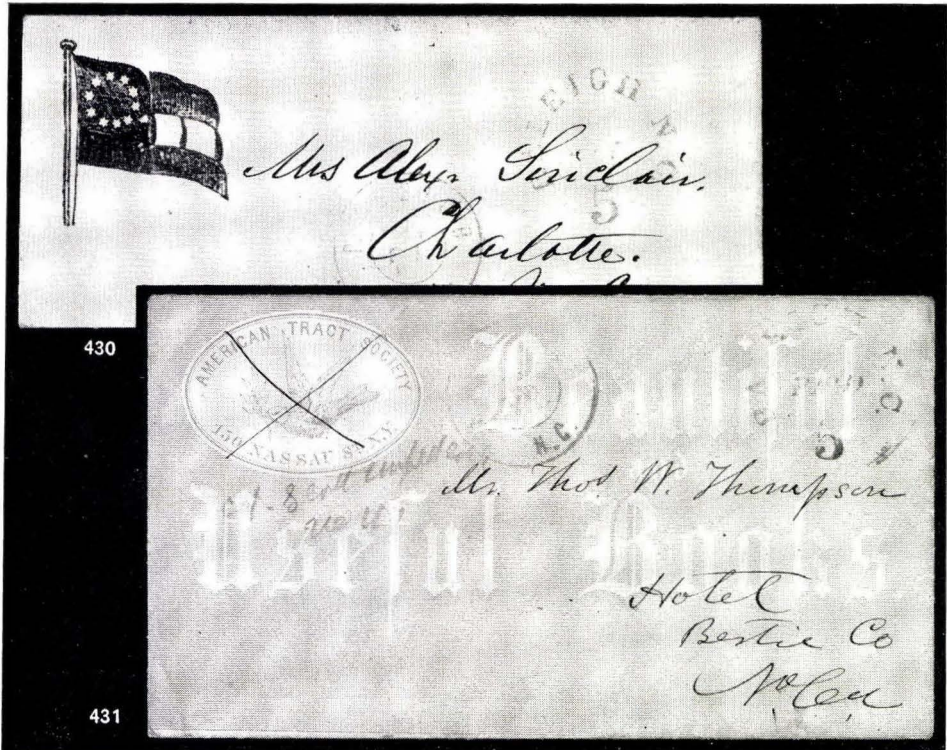 EIGH N
5
Mrs Alexr Sinclair.
Charlotte.
430
AMERICAN TRACT SOCIETY
150 NASSAU ST. N.Y.
Beautiful
Useful Books
N.C.
5
Mr. Thos W. Thompson
Hotel
Bertie Co
No Ca
431